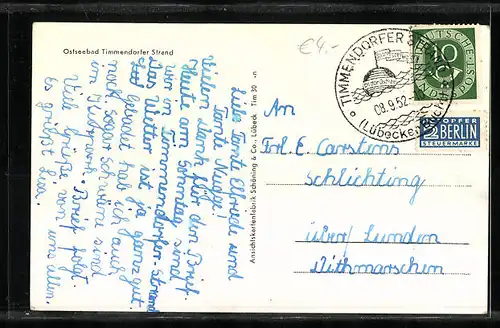 Ostseebad Timmendorfer Strand
€4,-
Liebe Tante Elfriede und
Tante Mudge!
Vielen Dank für den Brief.
Heute am Sonntag sind
wir in Timmendorfer-Strand
Das Wetter ist ja ganz gut.
gebadet hab ich auch
sogar Schwäne sind
im
Brief folgt.
Viele Grüße von uns allen.
Es grüßt
Ansichtskartenfabrik Schöning & Co., Lübeck Tim 30 n
TIMMENDORFER STRAND
08.9.52
(Lübecker Bucht)
DEUTSCHE BUNDESPOST
10
NOTOPFER
2 BERLIN
STEUERMARKE
An
Frl. E. Carstens
Schlichting
über/ Lunden
Dithmarschen